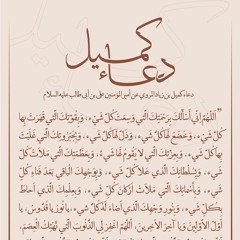 دعاء كميل
دعاء كميل بن زياد المروي عن أمير المؤمنين علي بن أبي طالب عليه السلام
"اللهم إني أسألك برحمتك التي وسعت كل شيء، وبقوتك التي قهرت بها
كل شيء، وخضع لها كل شيء، وذل لها كل شيء، وبجبروتك التي غلبت
بها كل شيء، وبعزتك التي لا يقوم لها شيء، وبعظمتك التي ملأت كل
شيء، وبسلطانك الذي علا كل شيء، وبوجهك الباقي بعد فناء كل
شيء، وبأسمائك التي ملأت أركان كل شيء، وبعلمك الذي أحاط
بكل شيء، وبنور وجهك الذي أضاء له كل شيء، يا نور يا قدوس، يا
أول الأولين ويا آخر الآخرين، اللهم اغفر لي الذنوب التي تهتك العصم،